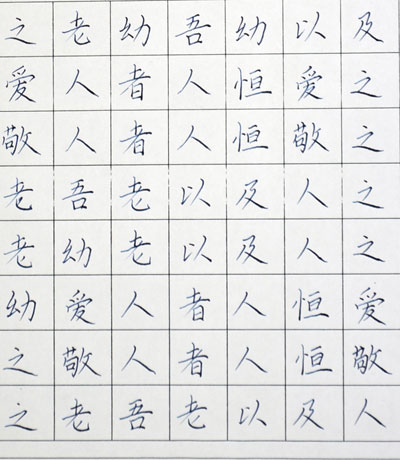 之老幼吾幼以及
爱人者人恒爱之
敬人者人恒敬之
老吾老以及人之
老幼老以及人之
幼爱人者人恒爱
之敬人者人恒敬
之老吾老以及人